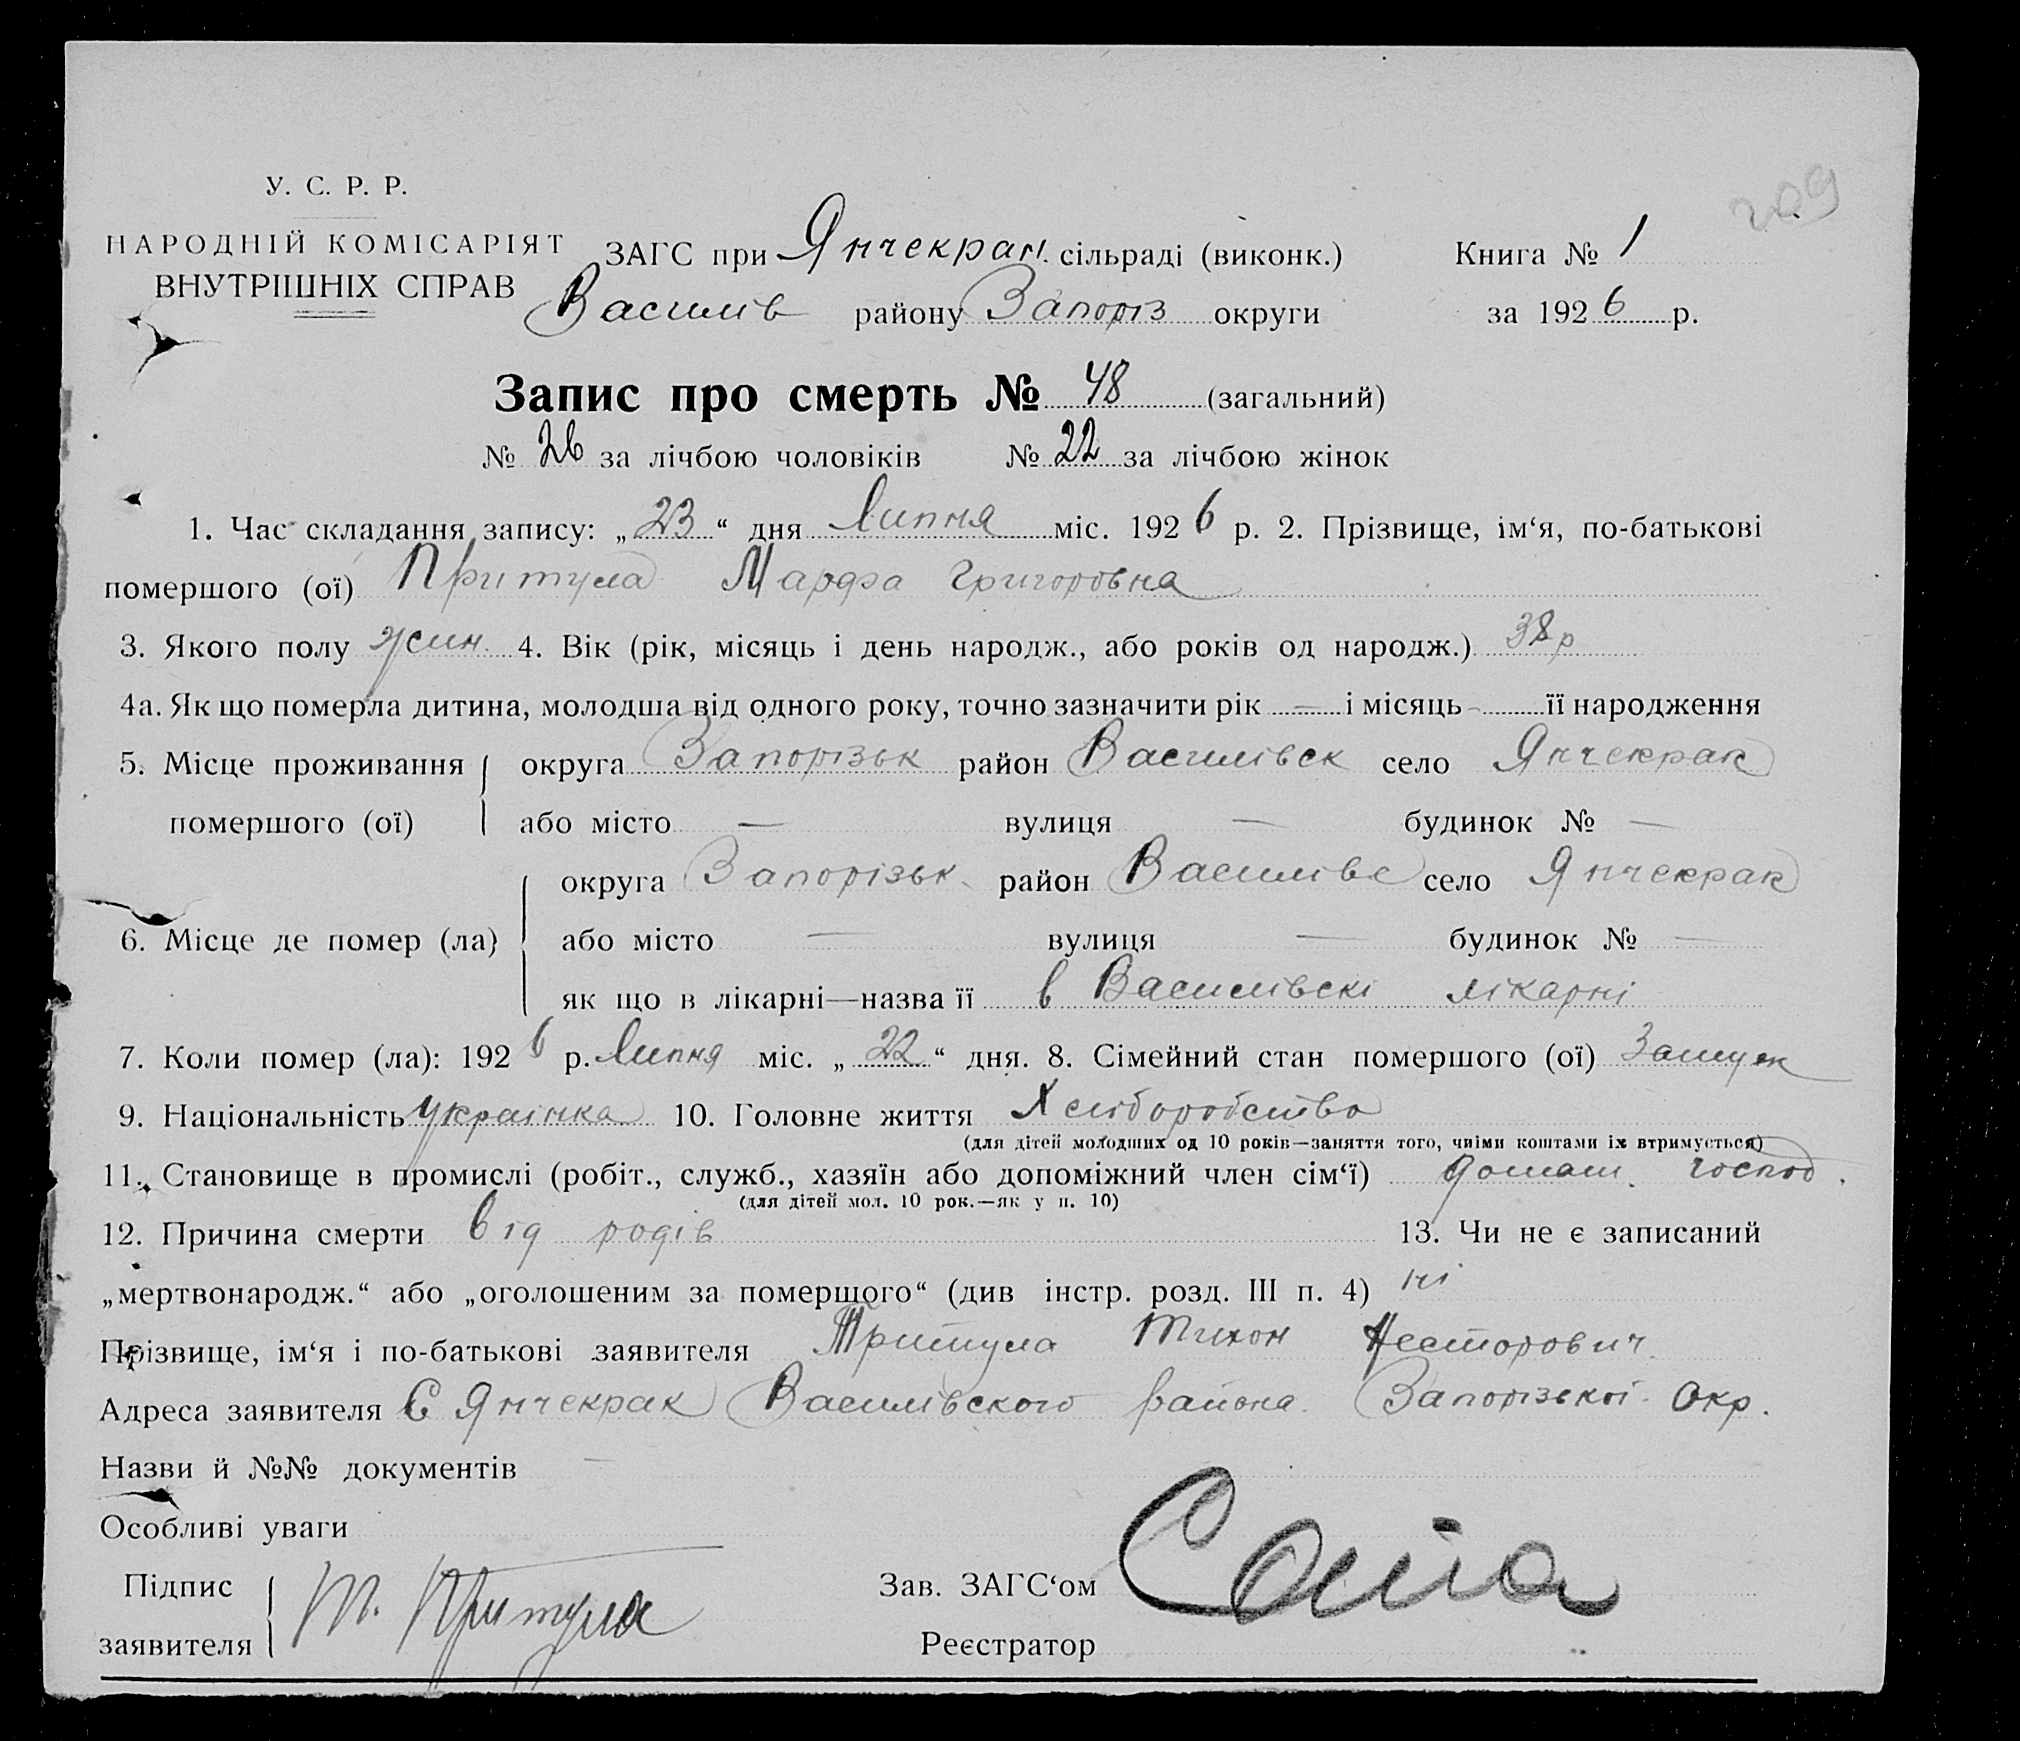 209
У. С. Р. Р.
НАРОДНІЙ КОМІСАРІЯТ
ВНУТРІШНІХ СПРАВ
ЗАГС при Янчекрак. сільраді (виконк.) Книга № 1
Василів району Запоріз округи за 1926 р.
Запис про смерть № 48 (загальний)
№ 26 за лічбою чоловіків № 22 за лічбою жінок
1. Час складання запису: „23“ дня Липня міс. 1926 р. 2. Прізвище, ім‘я, по-батькові
помершого (ої) Притула Марфа Григоровна
3. Якого полу жин. 4. Вік (рік, місяць і день народж., або років од народж.) 38 р
4а. Як що померла дитина, молодша від одного року, точно зазначити рік — і місяць - її народження
5. Місце проживання округа Запорізьк район Василівск село Янчекрак
помершого (ої) або місто — вулиця — будинок № —
округа Запорізьк. район Василівс село Янчекрак
6. Місце де помер (ла) або місто — вулиця — будинок № —
як що в лікарні—назва її в Василівскі лікарні
7. Коли помер (ла): 1926 р. Липня міс. „22“ дня. 8. Сімейний стан помершого (ої) Замуж
9. Національність українка 10. Головне життя Хліборобство
(для дітей молодших од 10 років—заняття того, чиїми коштами їх втримується)
11. Становище в промислі (робіт., служб., хазяїн або допоміжний член сім‘ї) домаш. господ.
(для дітей мол. 10 рок.—як у п. 10)
12. Причина смерти від родів 13. Чи не є записаний
„мертвонародж.“ або „оголошеним за померщого“ (див інстр. розд. III п. 4) ні
Прізвище, ім‘я і по-батькові заявителя Притула Тихон Несторович
Адреса заявителя С Янчекрак Василівского района Запорізької Окр.
Назви й №№ документів —
Особливі уваги
Підпис Т. Притула Зав. ЗАГС‘ом
заявителя Реєстратор